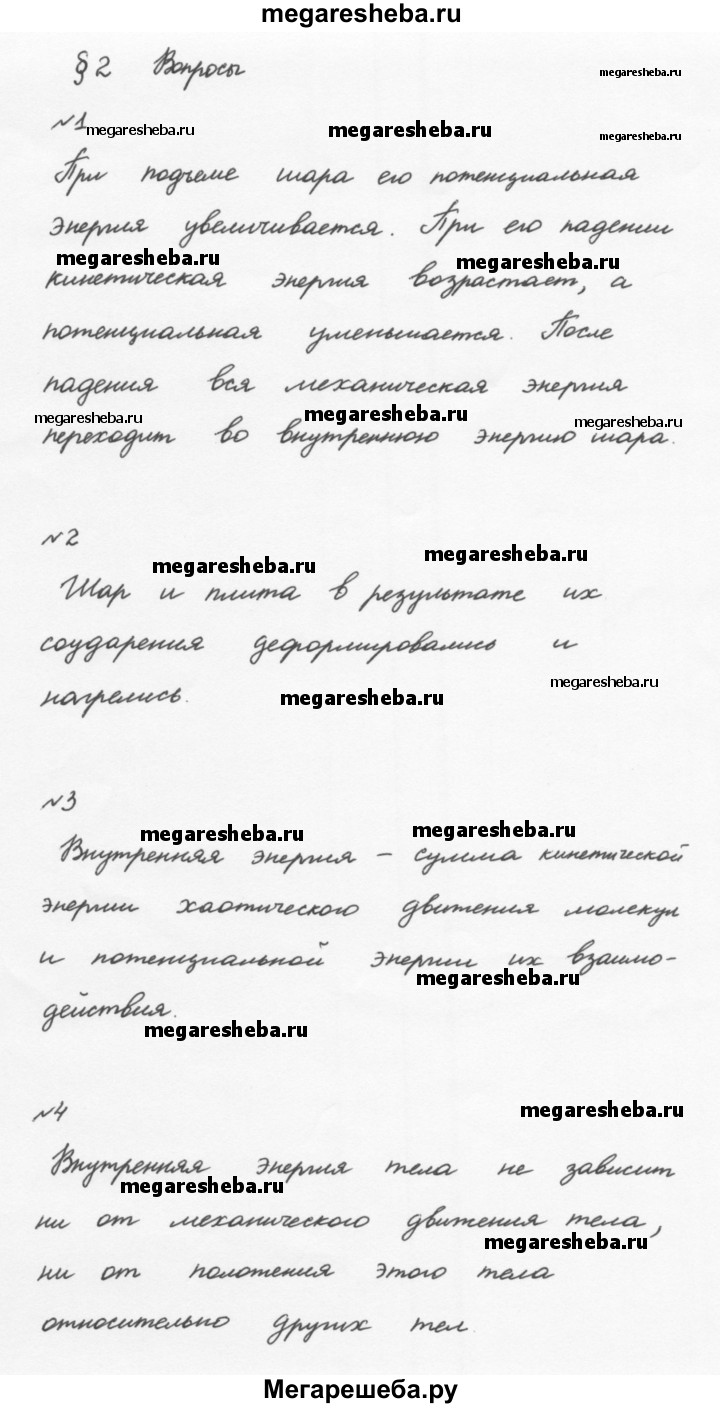 megaresheba.ru
§ 2 Вопросы
megaresheba.ru
№1
megaresheba.ru
megaresheba.ru
megaresheba.ru
При подъеме шара его потенциальная
энергия увеличивается. При его падении
megaresheba.ru
megaresheba.ru
кинетическая энергия возрастает, а
потенциальная уменьшается. После
падения вся механическая энергия
megaresheba.ru
megaresheba.ru
megaresheba.ru
переходит во внутреннюю энергию шара.
№2
megaresheba.ru
megaresheba.ru
Шар и плита в результате их
соударения деформировались и
нагрелись.
megaresheba.ru
megaresheba.ru
№3
megaresheba.ru
megaresheba.ru
Внутренняя энергия – сумма кинетической
энергии хаотического движения молекул
и потенциальной энергии их взаимо-
megaresheba.ru
действия.
megaresheba.ru
№4
megaresheba.ru
Внутренняя энергия тела не зависит
megaresheba.ru
ни от механического движения тела,
megaresheba.ru
ни от положения этого тела
относительно других тел.
Мегарешеба.ру